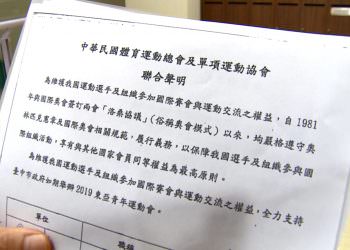 中華民國體育運動總會及單項運動協會
聯合聲明
為維護我國運動選手及組織參加國際賽會與運動交流之權益，自 1981
年與國際奧會簽訂兩會「洛桑協議」（俗稱奧會模式）以來，均嚴格遵守奧
林匹克憲章及國際奧會相關規範，履行義務，以保障我國選手及組織參與國
際組織活動，享有與其他國家會員同等權益為最高原則。
為維護我國運動選手及組織參加國際賽會與運動交流之權益，全力支持
臺中市政府如期舉辦 2019 東亞青年運動會。
單位
職稱